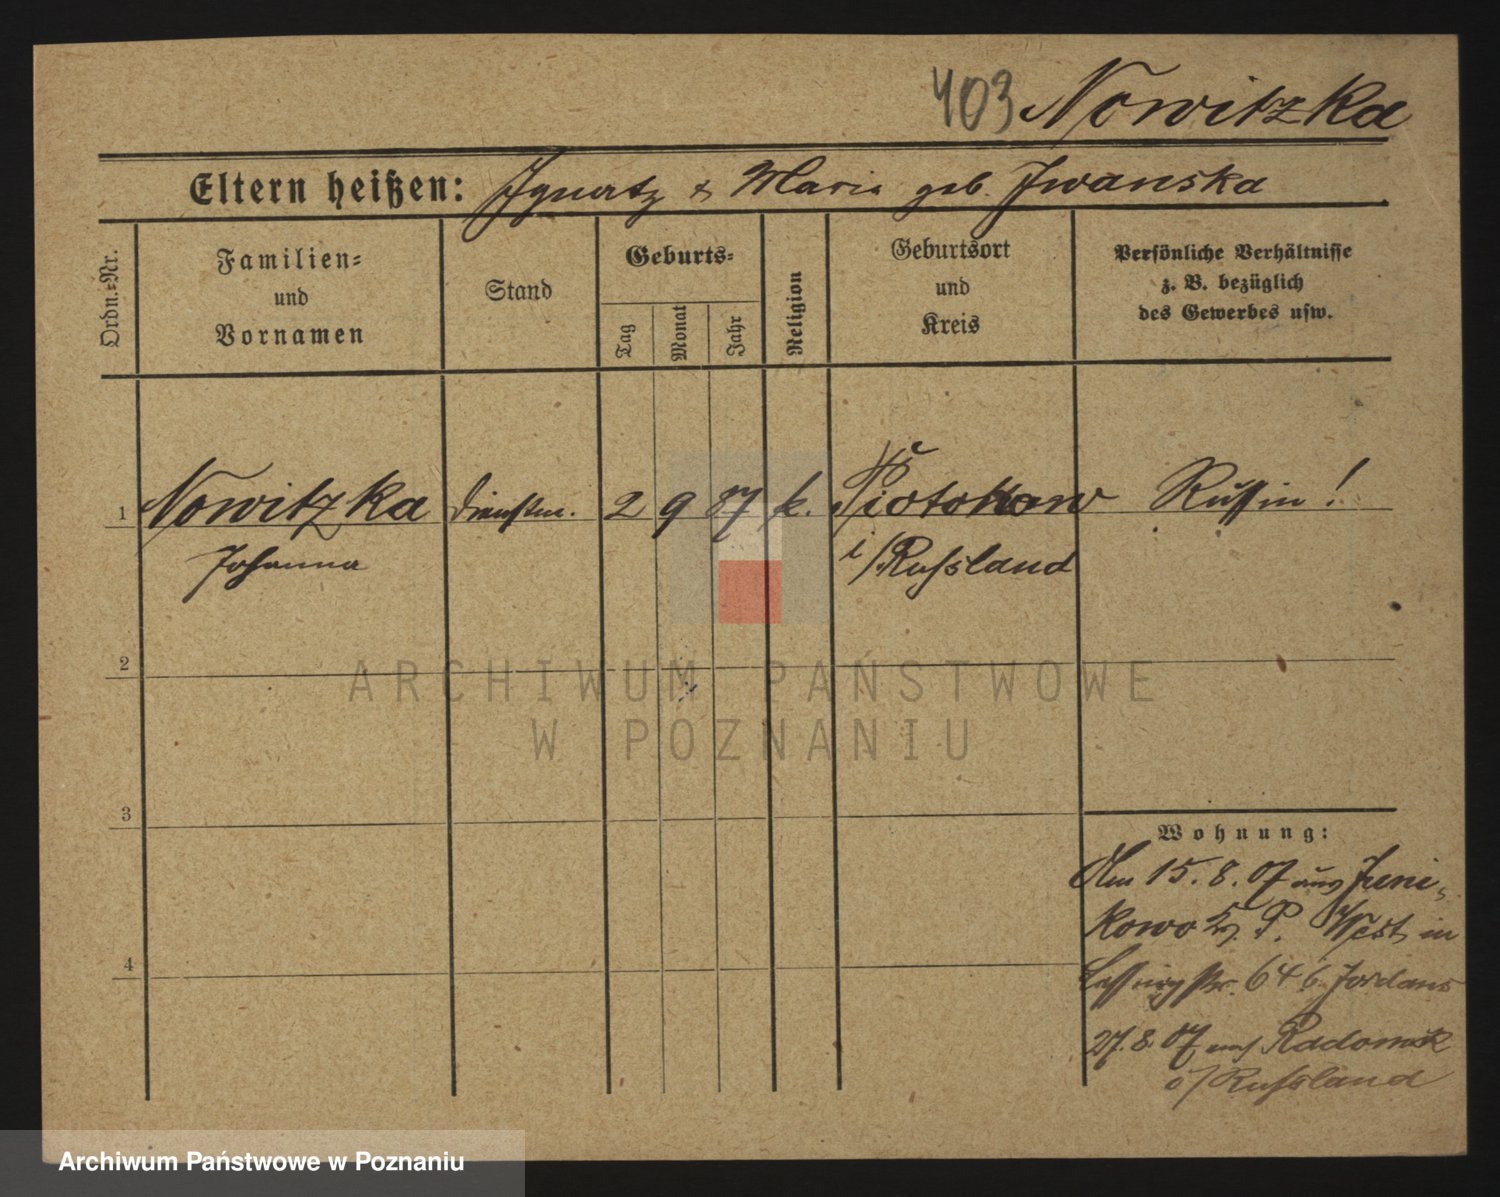 403 Nowitzka
Eltern heißen: Ignatz & Maria geb. Iwanska
Ordn.=Nr.
Familien=
und
Vornamen
Stand
Geburts=
Tag
Monat
Jahr
Religion
Geburtsort
und
Kreis
Persönliche Verhältnisse
z. B. bezüglich
des Gewerbes usw.
1 Nowitzka Dienstm. 2 9 87 k. Russin!
Johanna i/Russland
ARCHIWUM PAŃSTWOWE
W POZNANIU
2
3
4
Wohnung:
Am 15.8.07 aus Juni-
kowo Kr. P. West in
Lessingstr. 6 Jordans
27.8.07 nach Radomsk
Russland
Archiwum Państwowe w Poznaniu